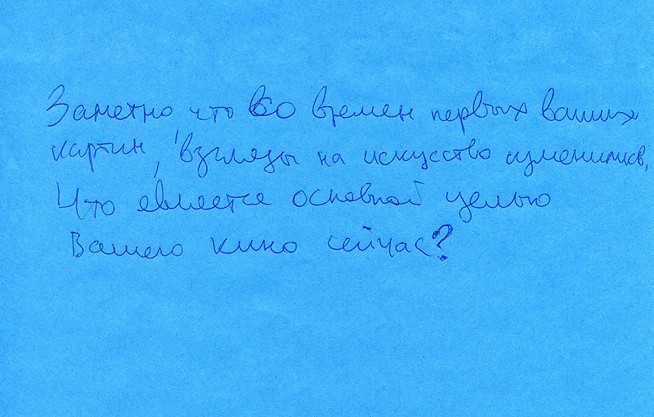 Заметно что со времен первых ваших
картин, взгляды на искусство изменились,
Что является основной целью
Вашего кино сейчас?